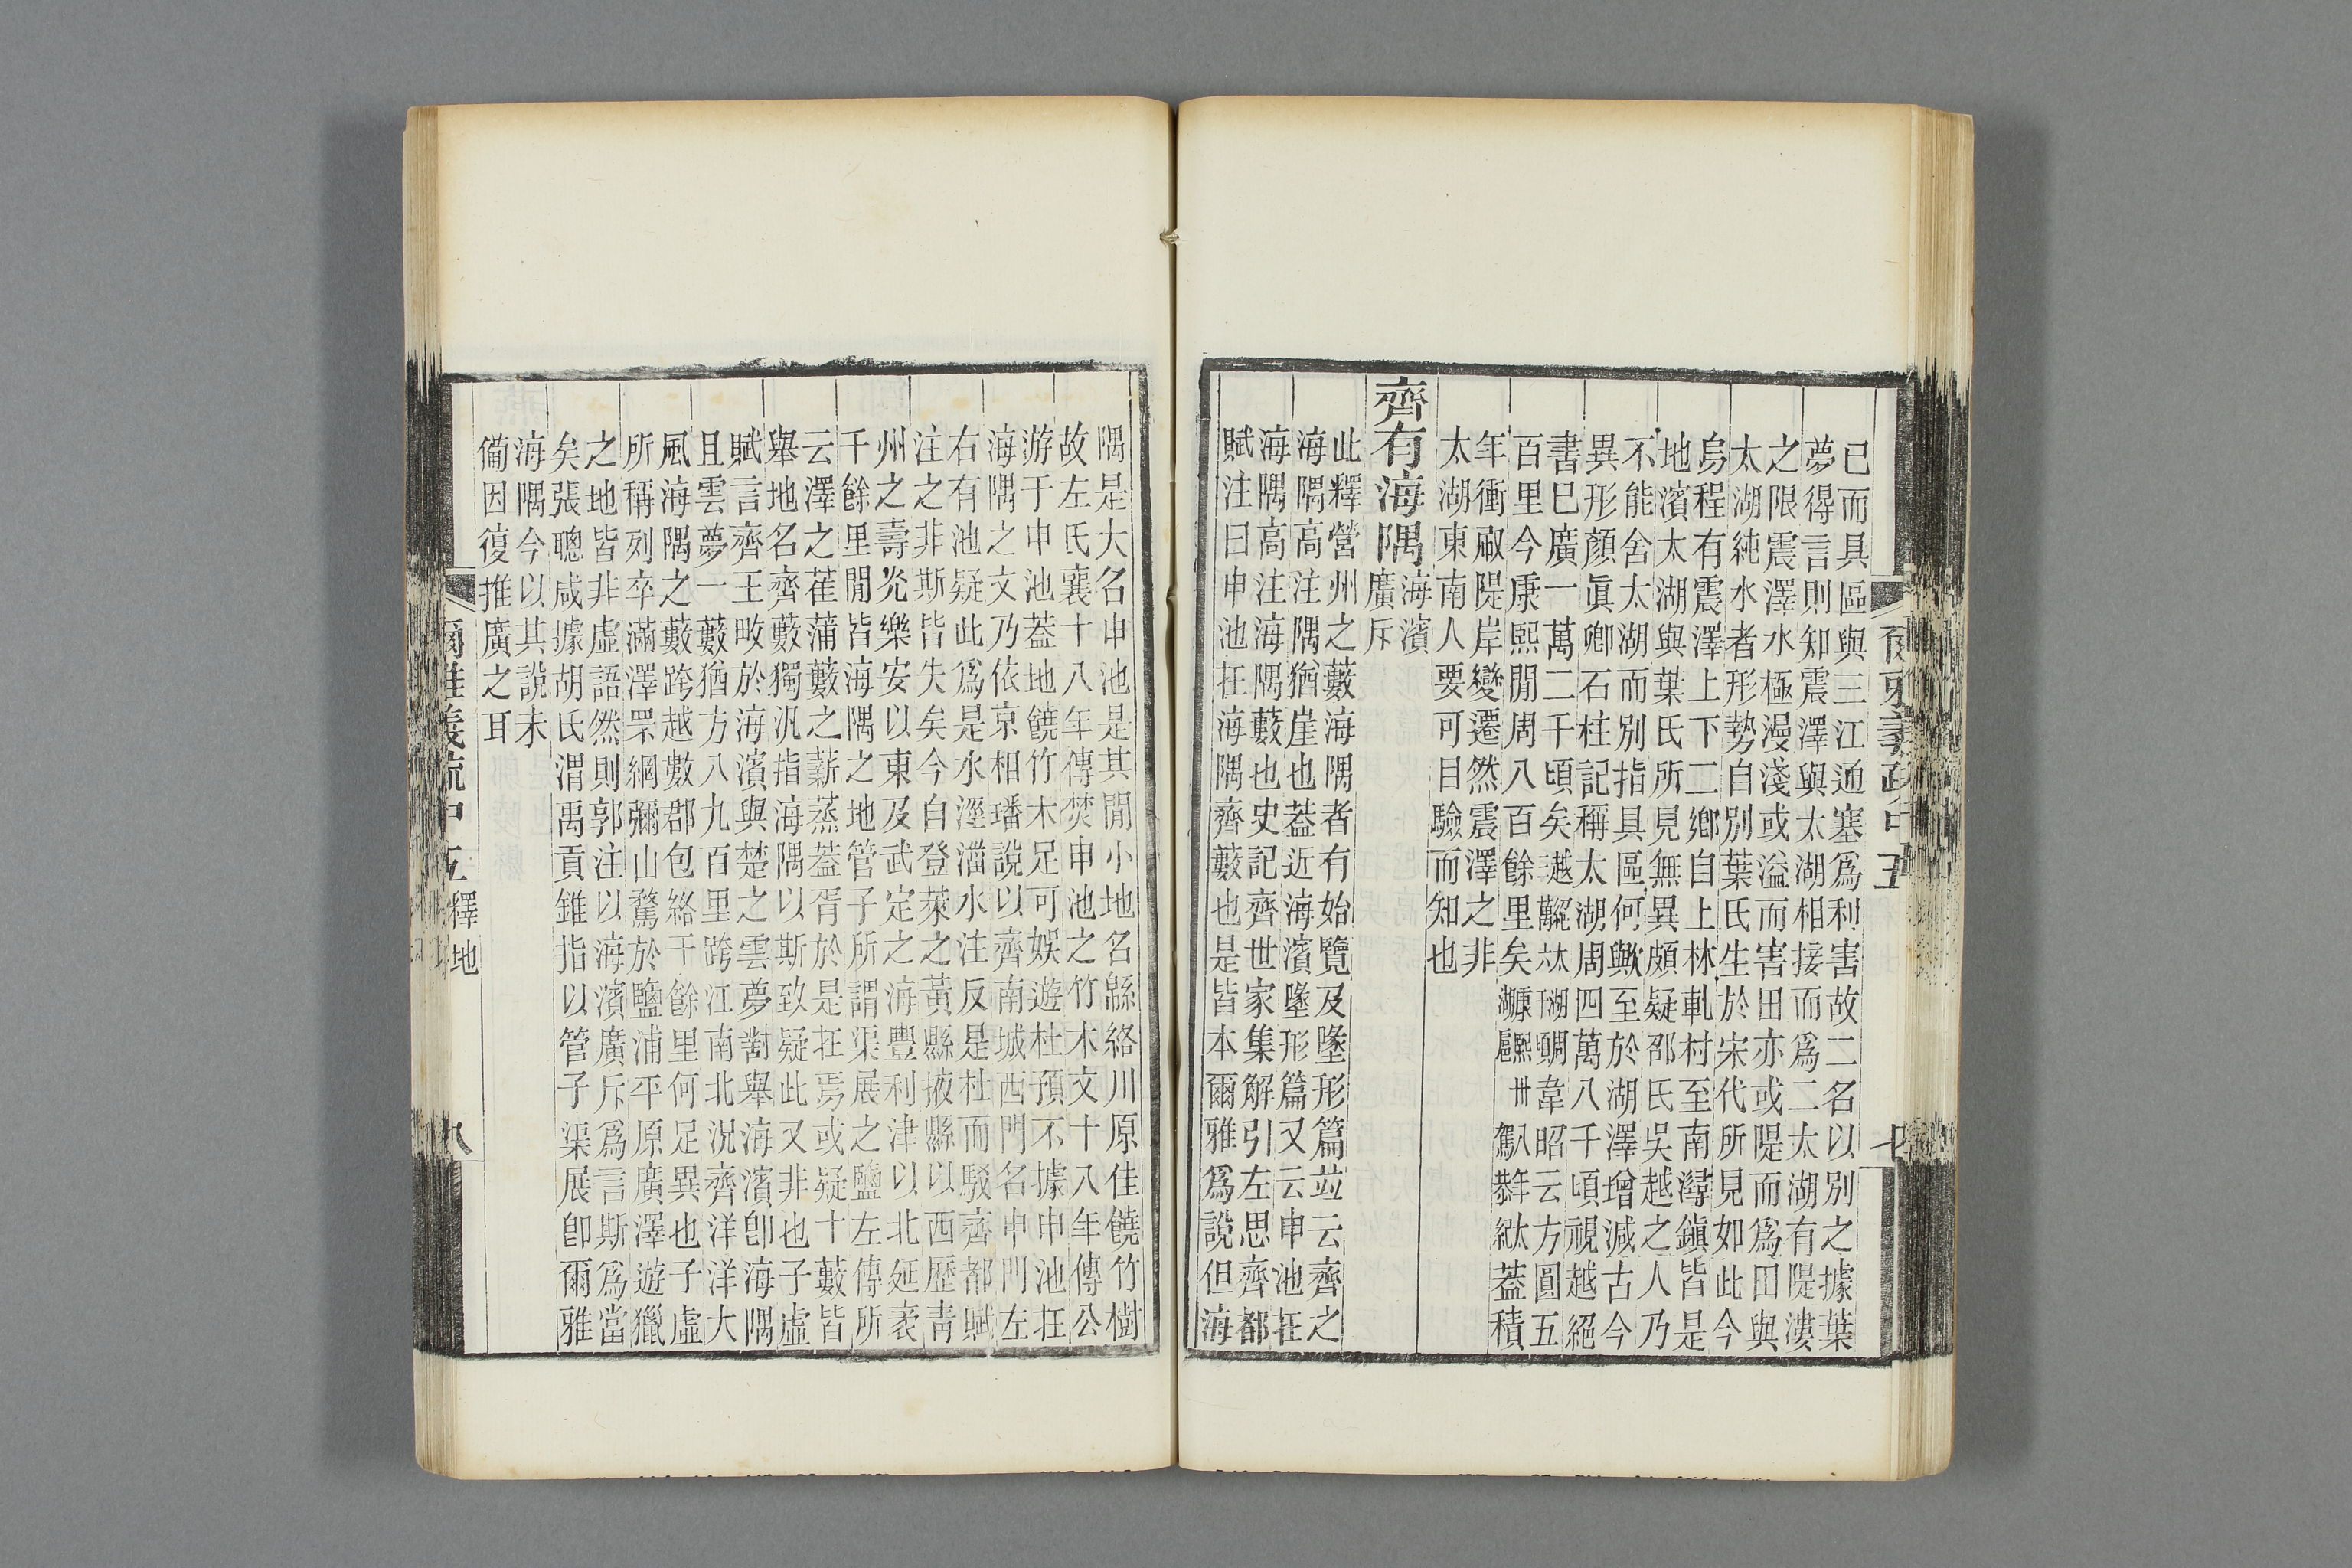 已而具區與三江通塞爲利害故二名以別之據葉
夢得言則知震澤與太湖相接而爲二太湖有隄漊
之限震澤水極漫淺或溢而害田亦或隄而爲田與
太湖純水者形勢自別葉氏生於宋代所見如此今
烏程有震澤上下二鄉自上林軋村至南潯鎭皆是
地濱太湖與葉氏所見無異頗疑邵氏吳越之人乃
不能舍太湖而別指具區何歟至於湖澤增減古今
異形顏眞卿石柱記稱太湖周四萬八千頃視越絕
書已廣一萬二千頃矣韋昭云方圓五
百里今康熙閒周八百餘里矣蓋積
年衝㕞隄岸變遷然震澤之非
太湖東南人要可目驗而知也
齊有海隅
海濱
廣斥
此釋營州之藪海隅者有始覽及墬形篇竝云齊之
海隅高注隅猶崖也蓋近海濱墬形篇又云申池在
海隅高注海隅藪也史記齊世家集解引左思齊都
賦注曰申池在海隅齊藪也是皆本爾雅爲說但海
爾雅義疏中五
七
隅是大名申池是其閒小地名緜絡川原佳饒竹樹
故左氏襄十八年傳焚申池之竹木文十八年傳公
游于申池蓋地饒竹木足可娛遊杜預不據申池在
海隅之文乃依京相璠說以齊南城西門名申門左
右有池疑此爲是水溼淄水注反是杜而駁齊都賦
注之非斯皆失矣今自登萊之黃縣掖縣以西歷靑
州之壽光樂安以東及武定之海豐利津以北延袤
千餘里閒皆海隅之地管子所謂渠展之鹽左傳所
云澤之萑蒲藪之薪蒸蓋胥於是在焉或疑十藪皆
舉地名齊藪獨汎指海隅以斯致疑此又非也子虛
賦言齊王畋於海濱與楚之雲夢對舉海濱卽海隅
且雲夢一藪猶方八九百里跨江南北況齊洋洋大
風海隅之藪跨越數郡包絡千餘里何足異也子虛
所稱列卒滿澤罘綱彌山騖於鹽浦平原廣澤遊獵
之地皆非虛語然則郭注以海濱廣斥爲言斯爲當
矣張聰咸據胡氏渭禹貢錐指以管子渠展卽爾雅
海隅今以其說未
備因復推廣之耳
爾雅義疏中五釋地
八